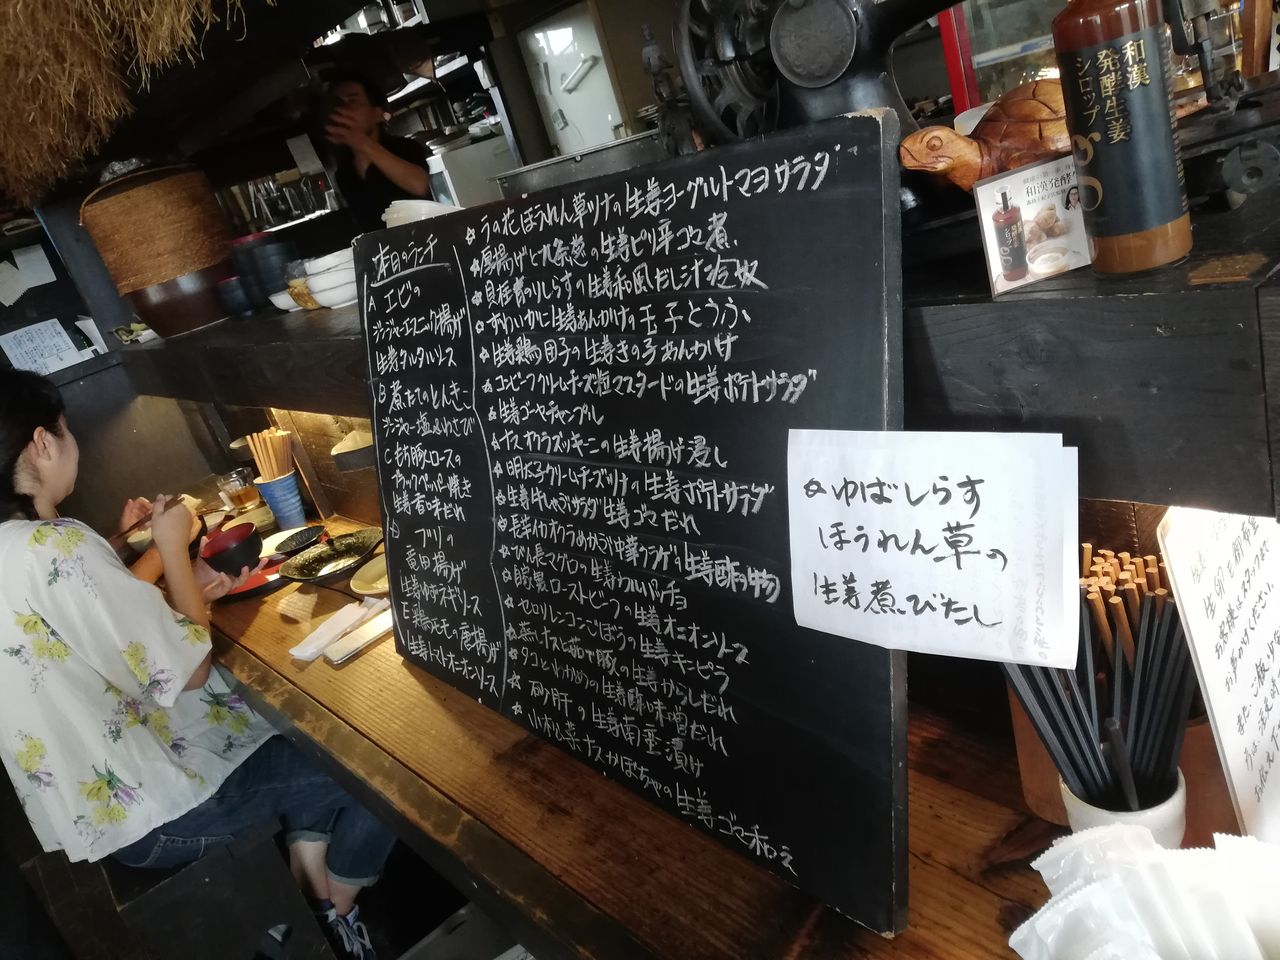 本日のランチ
A エビの
ジンジャーエスニック揚げ
生姜タルタルソース
B 煮たてのとんきー
ジンジャー塩&わさび
C もち豚ロースの
ブラックペッパー焼き
生姜香味だれ
D ブリの
竜田揚げ
生姜ゆずネギソース
E 鶏ももの唐揚げ
生姜トマトオニオンソース
☆うの花ほうれん草ツナの生姜ヨーグルトマヨサラダ
☆厚揚げと九条葱の生姜ピリ辛ゴマ煮
☆具在青のりしらすの生姜和風だし汁冷奴
☆ずわいかに生姜あんかけの玉子とうふ
☆生姜鶏団子の生姜きの子あんかけ
☆コンビーフクリームチーズ粒マスタードの生姜ポテトサラダ
☆生姜ゴーヤチャンプル
☆ナスオクラズッキーニの生姜揚げ浸し
☆明太子クリームチーズツナの生姜ポテトサラダ
☆生姜牛しゃぶサラダ生姜ゴマだれ
☆長芋イカオクラめかぶ中華クラゲの生姜酢の物
☆びん長マグロの生姜カルパッチョ
☆自家製ローストビーフの生姜オニオンソース
☆セロリレンコンごぼうの生姜キンピラ
☆蒸しナスと茹で豚の生姜からしだれ
☆タコとわかめの生姜酢味噌だれ
☆砂肝の生姜南蛮漬け
☆小松菜ナスかぼちゃの生姜ゴマ和え
☆ゆばしらす
ほうれん草の
生姜煮びたし
和漢
発酵生姜
シロップ
和漢発酵